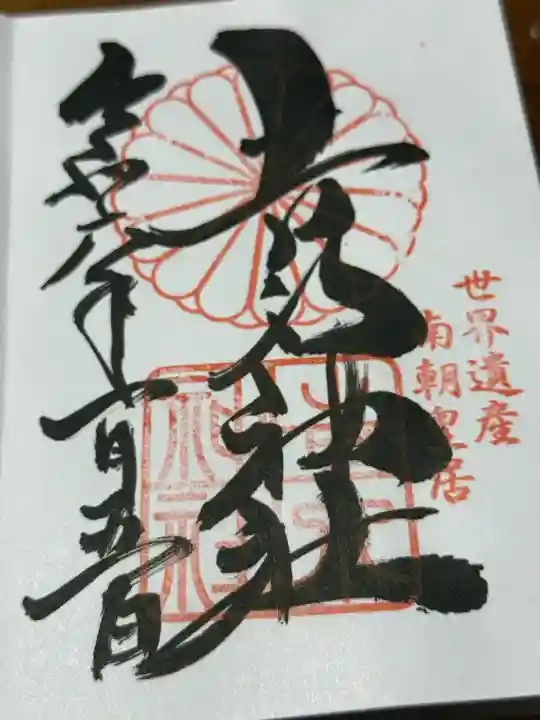 世界遺産
南朝皇居
吉水神社
令和六年
月五日